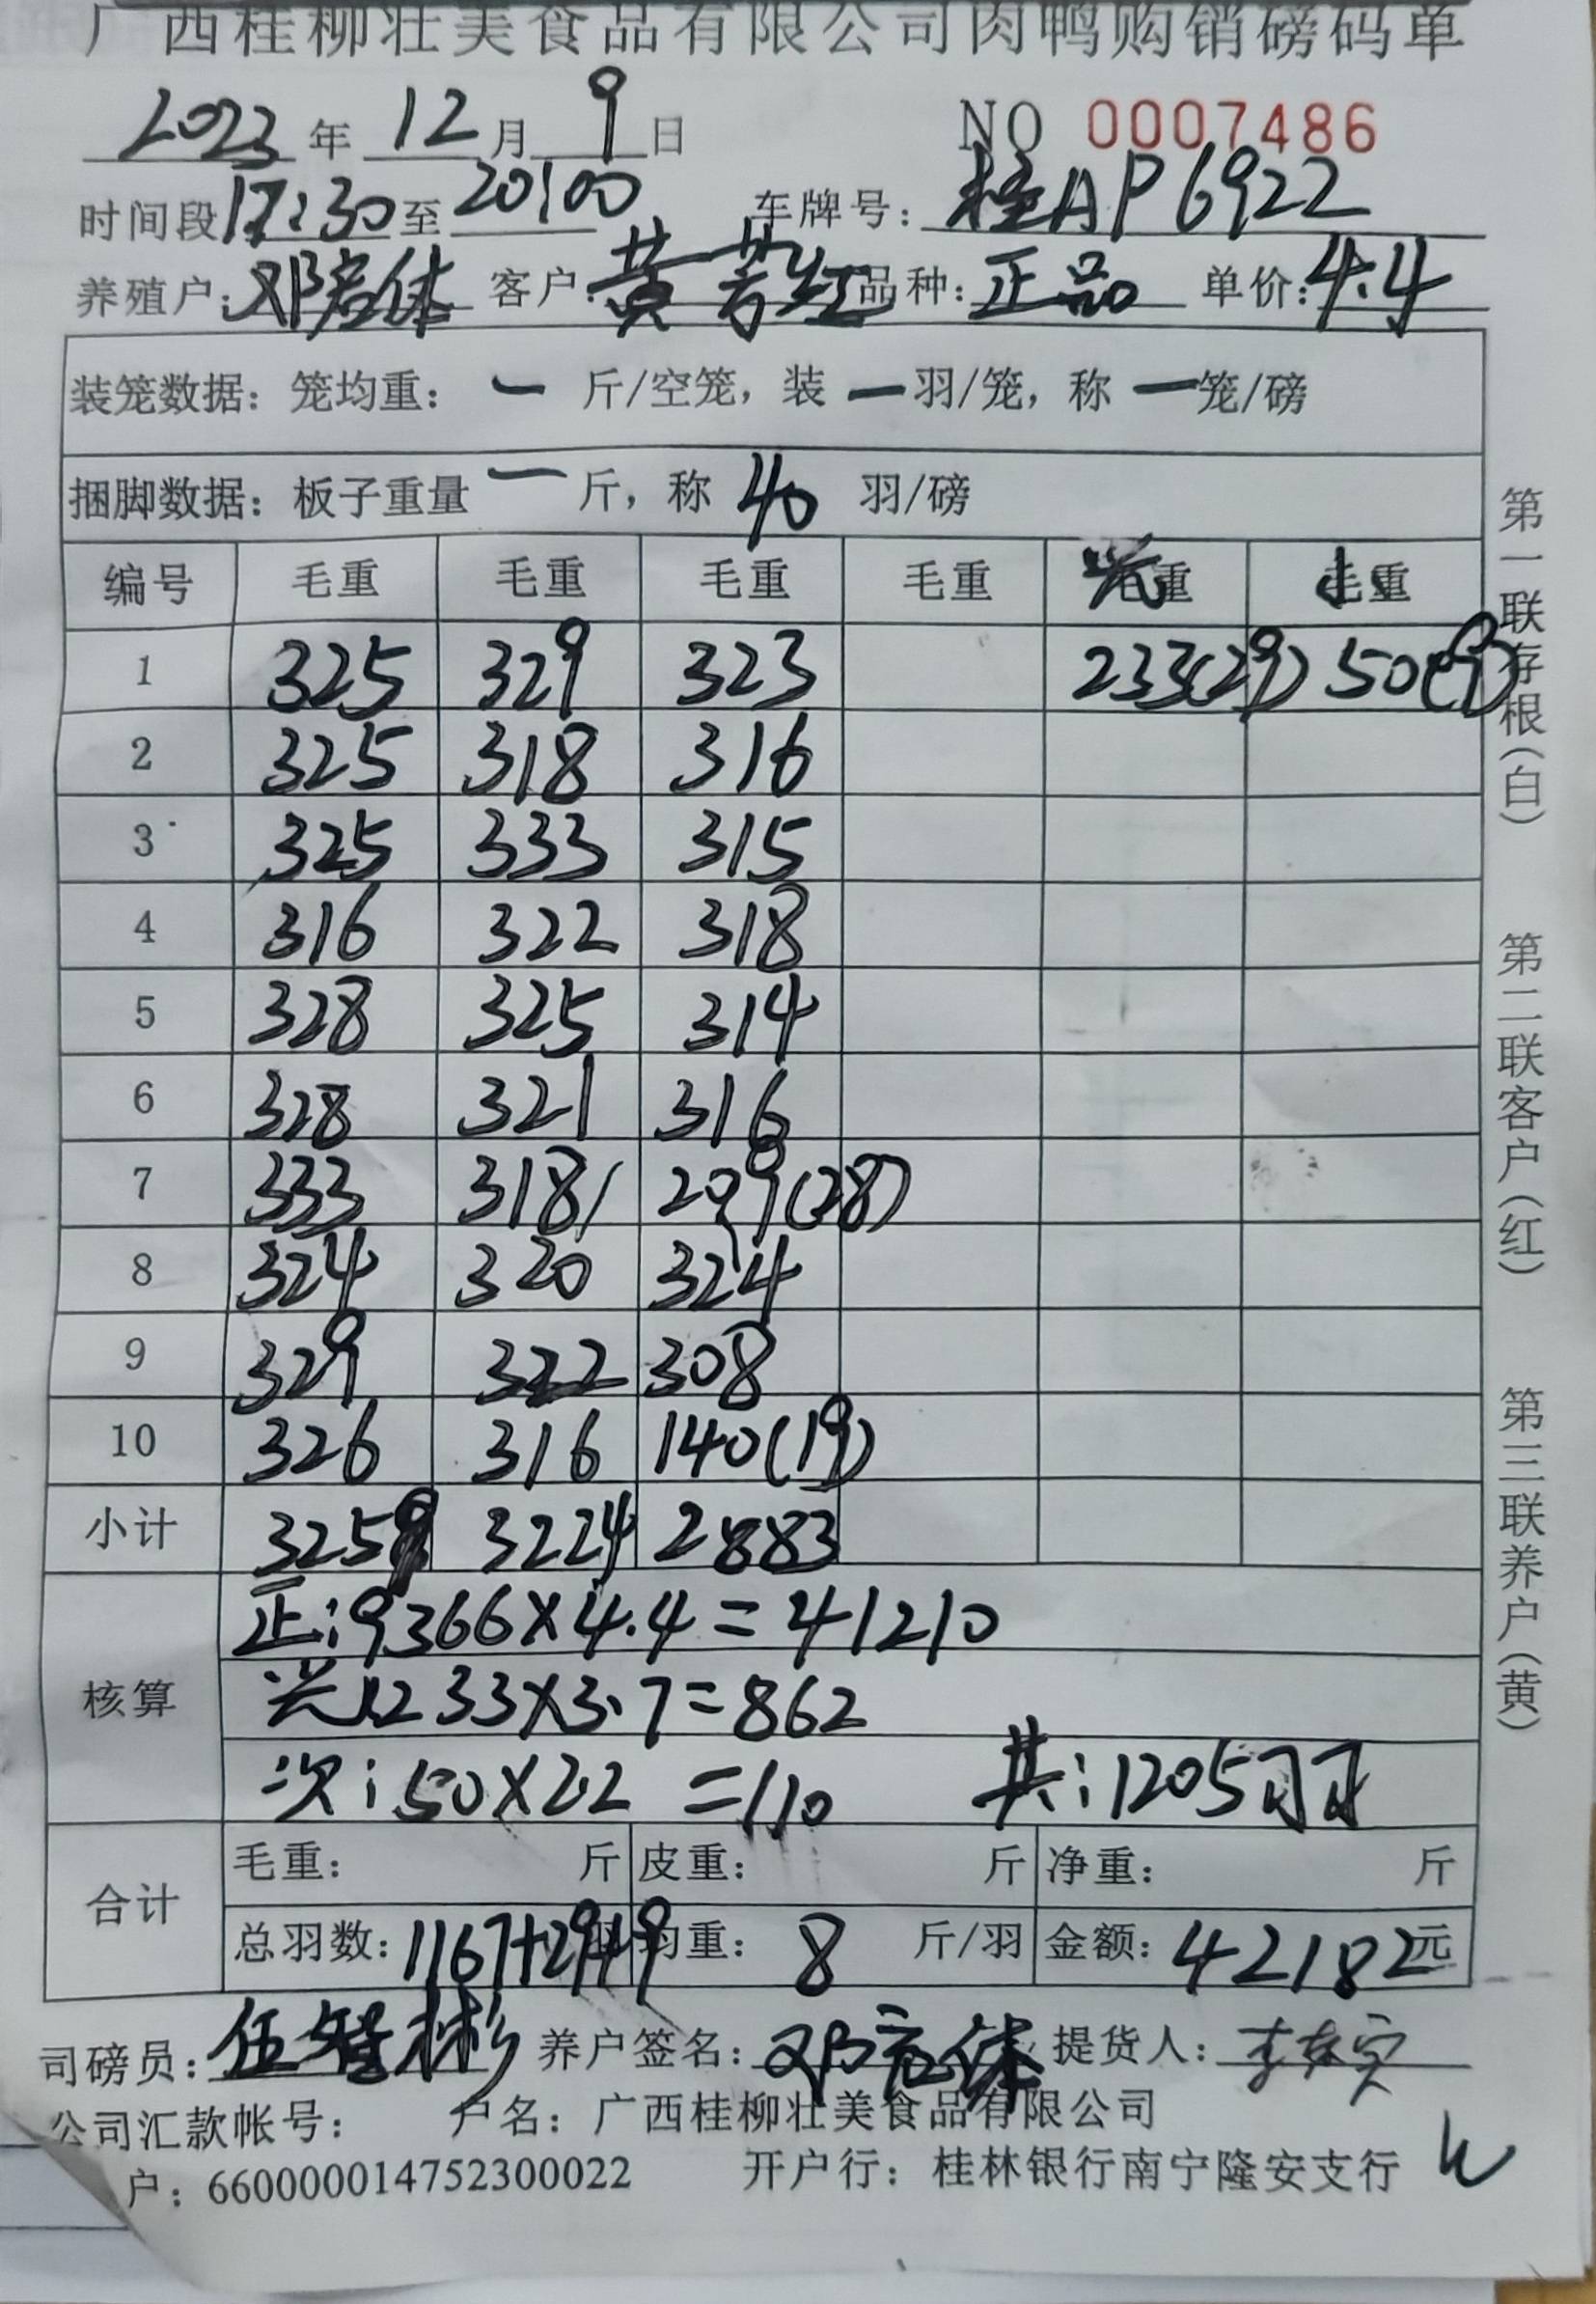 广西桂柳壮美食品有限公司肉鸭购销磅码单
2023年 12月 9日 NO 0007486
时间段17:30至20:00 车牌号:桂AP6922
养殖户:邓宏体 客户:黄芳红 品种:正品 单价:4.4
装笼数据:笼均重: 一 斤/空笼,装一羽/笼,称一笼/磅
捆脚数据:板子重量 一 斤,称 40 羽/磅
编号 毛重 毛重 毛重 毛重 毛重 毛重
1 325 329 323 233(29) 50(9)
2 325 318 316
3 325 333 315
4 316 322 318
5 328 325 314
6 328 321 316
7 333 318 209(28)
8 324 320 324
9 329 322 308
10 326 316 140(19)
小计 3259 3224 2883
核算
正:9366×4.4=41210
233×3.7=862
次:50×2.2=110 共:1205羽
合计
毛重: 斤 皮重: 斤 净重: 斤
总羽数:1167+29+9 均重: 8 斤/羽 金额:42182元
司磅员:伍 彬 养户签名:邓宏体 提货人:李
公司汇款帐号: 户名:广西桂柳壮美食品有限公司
户:660000014752300022 开户行:桂林银行南宁隆安支行
第一联存根(白)
第二联客户(红)
第三联养户(黄)